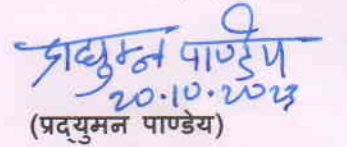 प्रद्युम्न पाण्डेय
20.10.2023
(प्रद्युमन पाण्डेय)